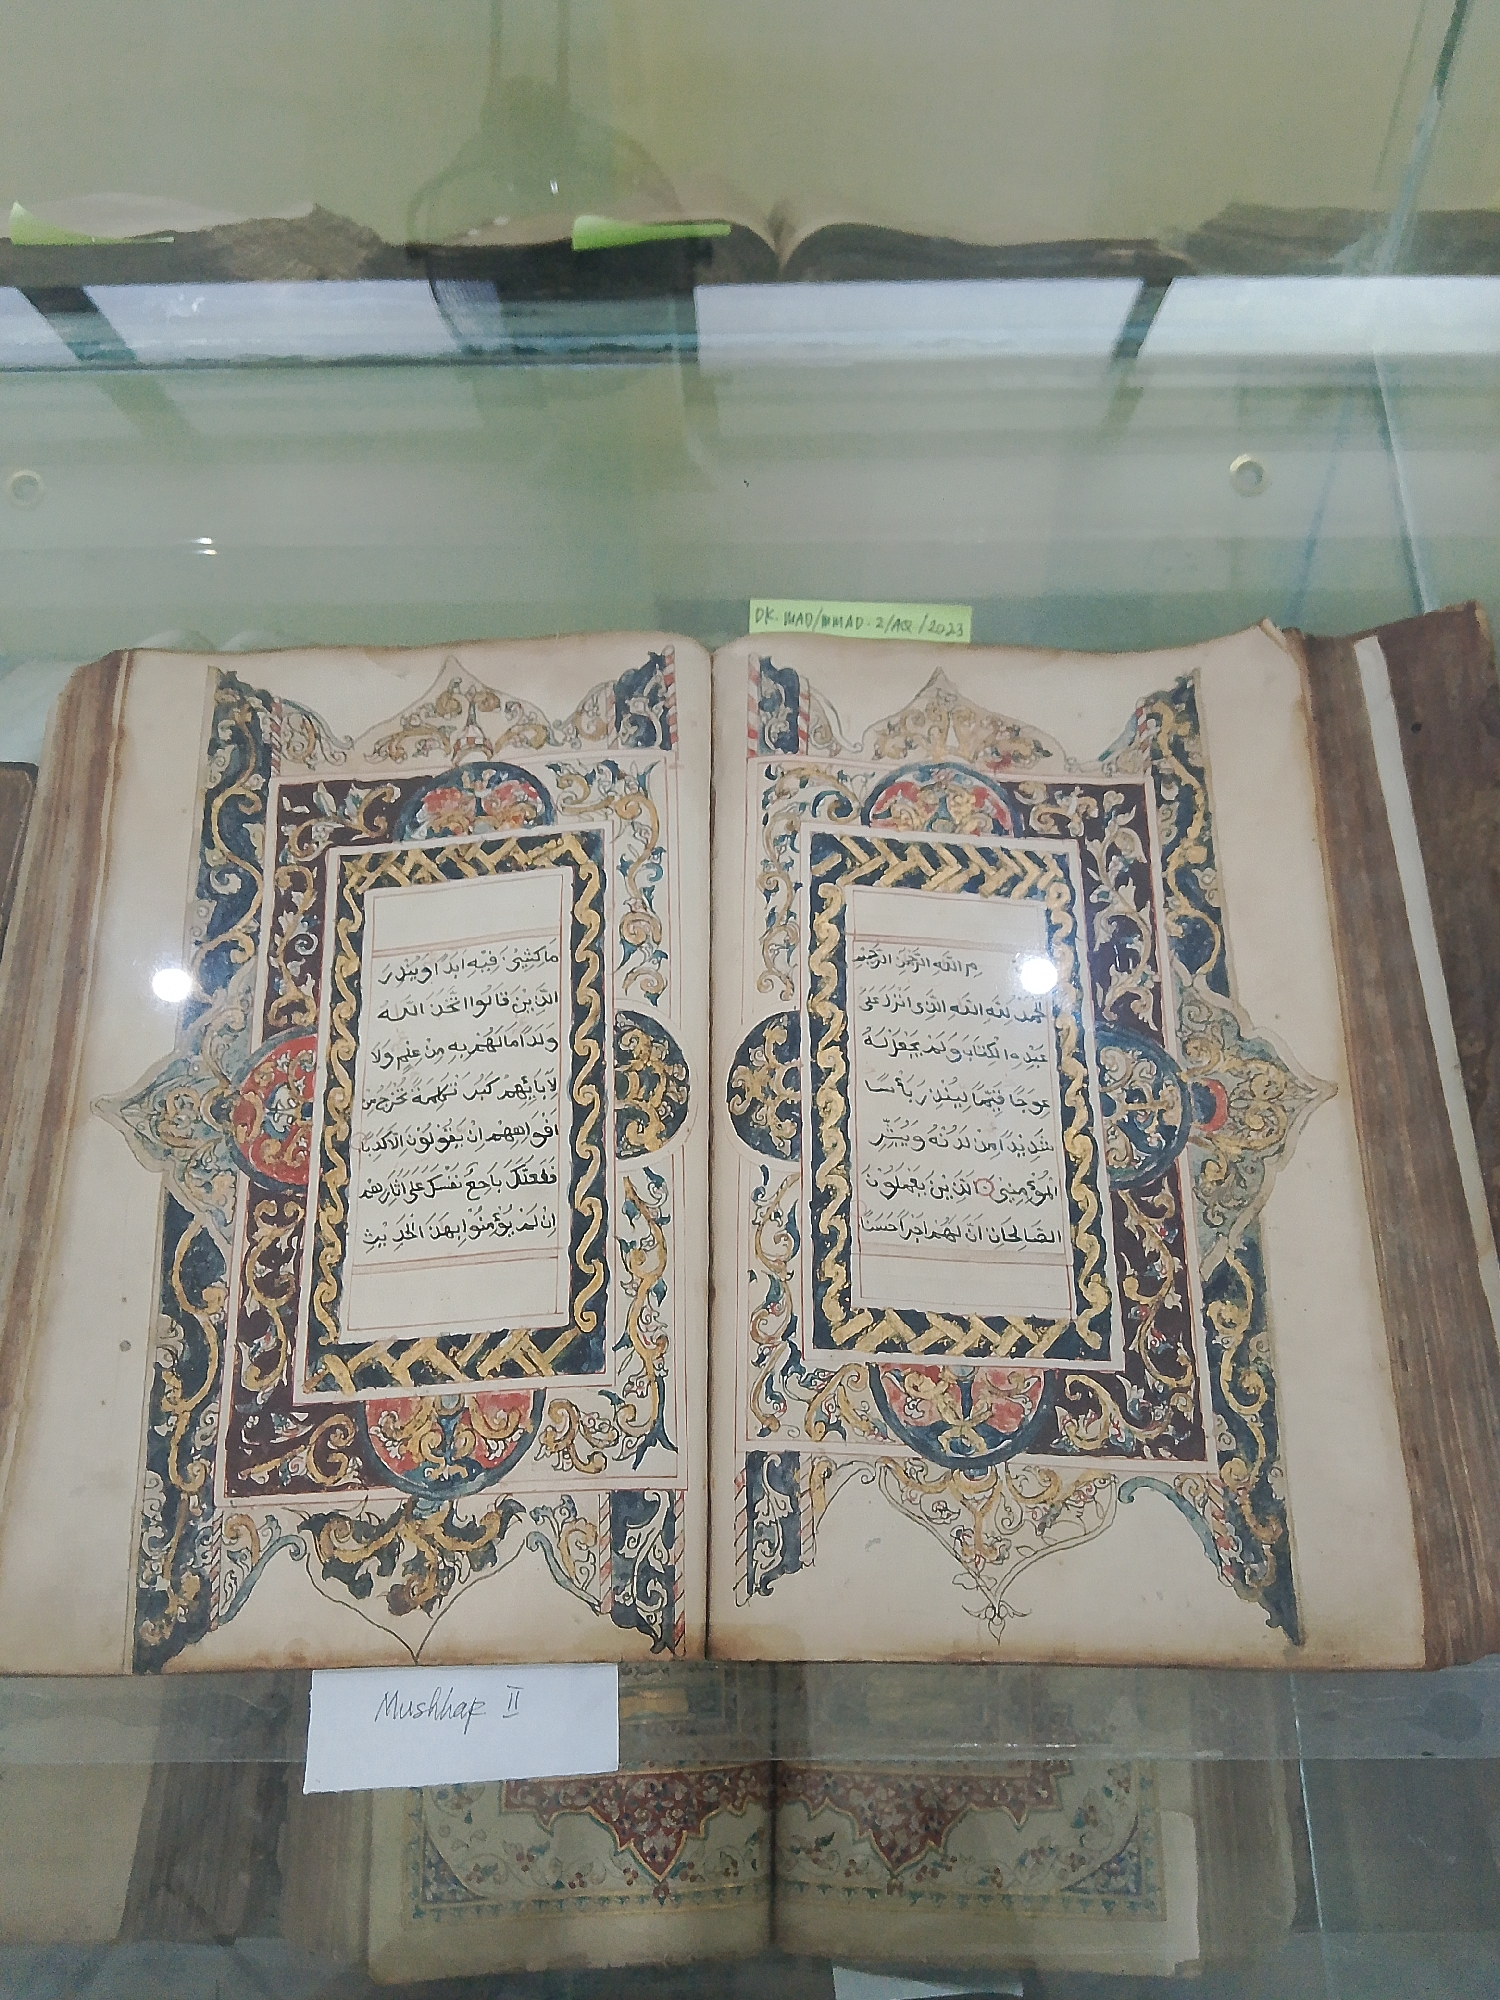 DK-MAD/MMAD-2/AQ/2023
م الله الرحمن الرحيم
الحمد لله الله الذي انزل على
عبده الكتاب ولم يجعل له
عوجا قيما لينذر بأسا
شديدا من لدنه ويبشر
المؤمنين الذين يعملون
الصالحات ان لهم اجرا حسنا
مَاكِثِيْنَ فِيْهِ اَبَدًا وَيُنْذِرَ
الَّذِيْنَ قَالُوا اتَّخَذَ اللهُ
وَلَدًا مَا لَهُمْ بِهِ مِنْ عِلْمٍ وَلَا
لِآبَائِهِمْ كَبُرَتْ كَلِمَةً تَخْرُجُ مِنْ
اَفْوَاهِهِمْ اِنْ يَقُوْلُوْنَ اِلَّا كَذِبًا
فَلَعَلَّكَ بَاخِعٌ نَفْسَكَ عَلَى اٰثَارِهِمْ
اِنْ لَمْ يُؤْمِنُوْا بِهٰذَا الْحَدِيْثِ
Mushhaf II